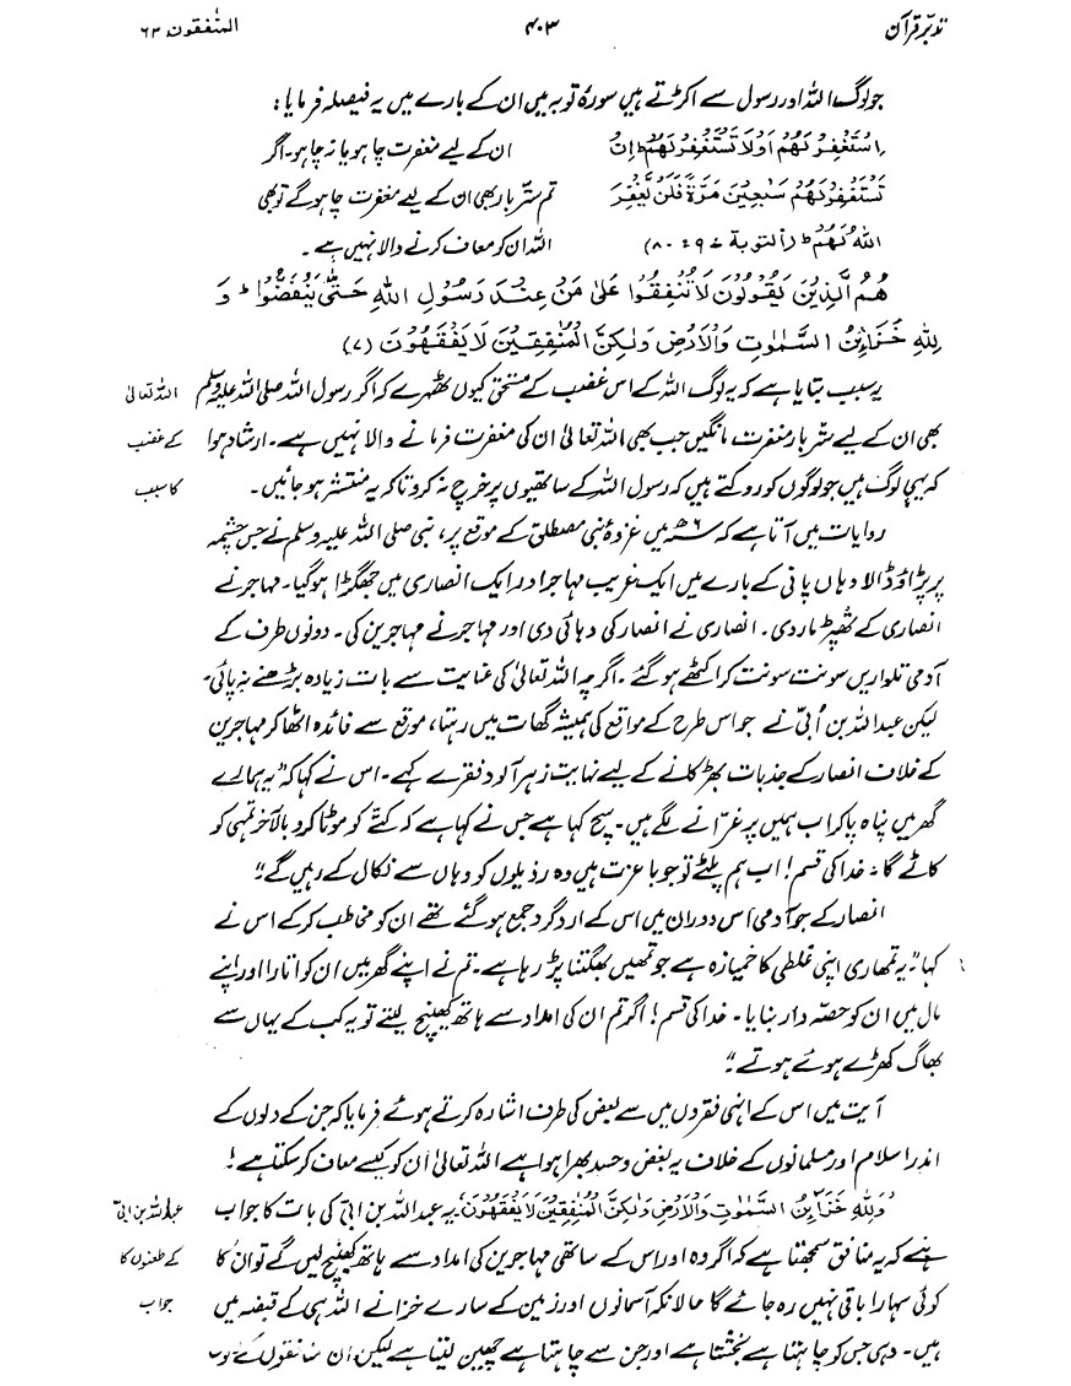 تدبّرِ قرآن ۴۰۳ المنٰفقون ۶۳
جو لوگ اللہ اور رسول سے اکڑتے ہیں سورۂ توبہ میں ان کے بارے میں یہ فیصلہ فرمایا:
اِسْتَغْفِرْ لَهُمْ اَوْلَا تَسْتَغْفِرْ لَهُمْ ط اِنْ ان کے لیے مغفرت چاہو یا نہ چاہو۔ اگر
تَسْتَغْفِرْ لَهُمْ سَبْعِيْنَ مَرَّةً فَلَنْ يَّغْفِرَ تم ستّر بار بھی ان کے لیے مغفرت چاہو گے تو بھی
اللّٰهُ لَهُمْ ط (التوبة - ۹: ۸۰) اللہ ان کو معاف کرنے والا نہیں ہے۔
هُمُ الَّذِيْنَ يَقُوْلُوْنَ لَا تُنْفِقُوْا عَلٰى مَنْ عِنْدَ رَسُوْلِ اللّٰهِ حَتّٰى يَنْفَضُّوْا ط وَ
لِلّٰهِ خَزَآئِنُ السَّمٰوٰتِ وَالْاَرْضِ وَلٰكِنَّ الْمُنٰفِقِيْنَ لَا يَفْقَهُوْنَ (۷)
یہ سبب بتایا ہے کہ یہ لوگ اللہ کے اس غضب کے مستحق کیوں ٹھہرے کہ اگر رسول اللہ صلی اللہ علیہ وسلم اللہ تعالیٰ
بھی ان کے لیے ستّر بار مغفرت مانگیں جب بھی اللہ تعالیٰ ان کی مغفرت فرمانے والا نہیں ہے۔ ارشاد ہوا کے غضب
کہ یہی لوگ ہیں جو لوگوں کو روکتے ہیں کہ رسول اللہ کے ساتھیوں پر خرچ نہ کرو تاکہ یہ منتشر ہو جائیں۔ کا سبب
روایات میں آتا ہے کہ ۶ھ میں غزوۂ بنی مصطلق کے موقع پر، نبی صلی اللہ علیہ وسلم نے جس چشمہ
پر پڑاؤ ڈالا وہاں پانی کے بارے میں ایک غریب مہاجر اور ایک انصاری میں جھگڑا ہو گیا۔ مہاجر نے
انصاری کے تھپڑ مار دی۔ انصاری نے انصار کی دہائی دی اور مہاجر نے مہاجرین کی۔ دونوں طرف کے
آدمی تلواریں سونت سونت کر اکٹھے ہو گئے۔ اگرچہ اللہ تعالیٰ کی عنایت سے بات زیادہ بڑھنے نہ پائی۔
لیکن عبداللہ بن اُبیّ نے جو اس طرح کے مواقع کی ہمیشہ گھات میں رہتا، موقع سے فائدہ اٹھا کر مہاجرین
کے خلاف انصار کے جذبات بھڑکانے کے لیے نہایت زہر آلود فقرے کہے۔ اس نے کہا کہ "یہ ہمارے
گھر میں پناہ پا کر اب ہمیں پر غرّانے لگے ہیں۔ سچ کہا ہے جس نے کہا ہے کہ کتّے کو موٹا کرو بالآخر تمہی کو
کاٹے گا۔ خدا کی قسم! اب ہم پلٹے تو جو با عزت ہیں وہ رذیلوں کو وہاں سے نکال کے رہیں گے"
انصار کے جو آدمی اس دوران میں اس کے ارد گرد جمع ہو گئے تھے ان کو مخاطب کر کے اس نے
کہا "یہ تمھاری اپنی غلطی کا خمیازہ ہے جو تمھیں بھگتنا پڑ رہا ہے۔ تم نے اپنے گھر میں ان کو اتارا اور اپنے
مال میں ان کو حصّہ دار بنایا۔ خدا کی قسم! اگر تم ان کی امداد سے ہاتھ کھینچ لیتے تو یہ کب کے یہاں سے
بھاگ کھڑے ہوئے ہوتے۔"
آیت میں اس کے انہی فقروں میں سے بعض کی طرف اشارہ کرتے ہوئے فرمایا کہ جن کے دلوں کے
اندر اسلام اور مسلمانوں کے خلاف یہ بغض و حسد بھرا ہوا ہے اللہ تعالیٰ ان کو کیسے معاف کر سکتا ہے!
'وَلِلّٰهِ خَزَآئِنُ السَّمٰوٰتِ وَالْاَرْضِ وَلٰكِنَّ الْمُنٰفِقِيْنَ لَا يَفْقَهُوْنَ' یہ عبداللہ بن ابیّ کی بات کا جواب عبداللہ بن ابیّ
ہے کہ یہ منافق سمجھتا ہے کہ اگر وہ اور اس کے ساتھی مہاجرین کی امداد سے ہاتھ کھینچ لیں گے تو ان کا کے طعنوں کا
کوئی سہارا باقی نہیں رہ جائے گا حالانکہ آسمانوں اور زمین کے سارے خزانے اللہ ہی کے قبضہ میں جواب
ہیں۔ وہی جس کو چاہتا ہے بخشتا ہے اور جن سے چاہتا ہے چھین لیتا ہے لیکن ان منافقوں کے